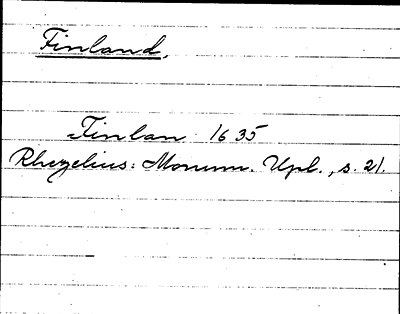 Finland,
Finlan 1635
Rhezelius: Monum. Upl., s. 21.